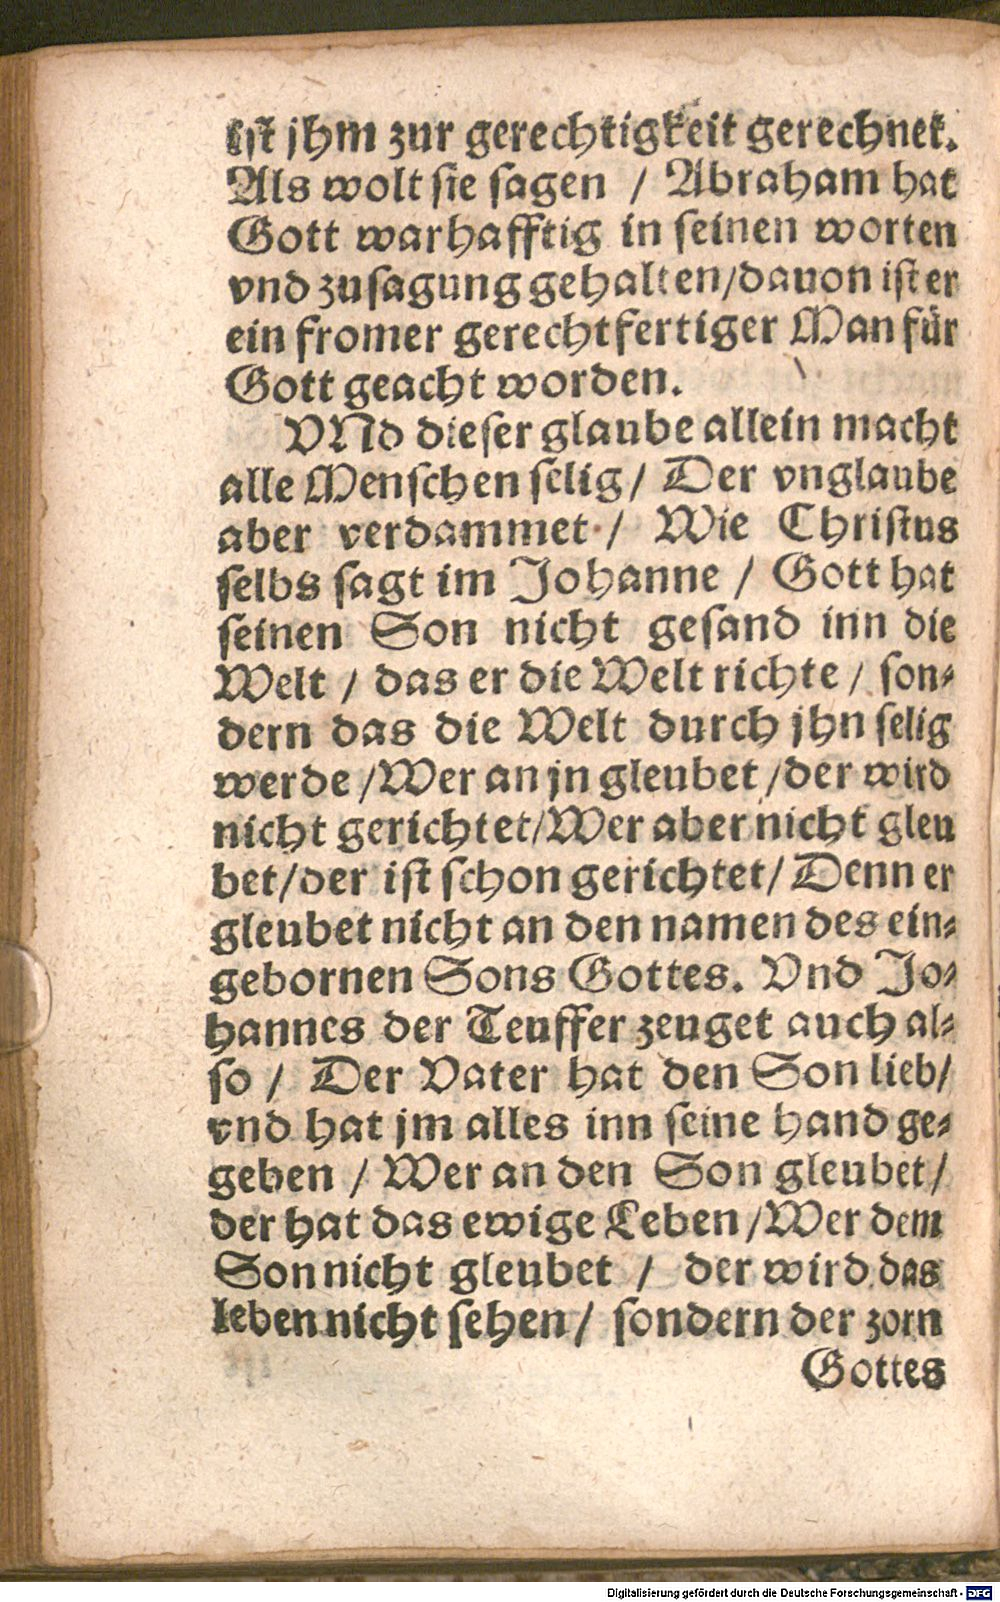 ist jhm zur gerechtigkeit gerechnet.
Als wolt sie sagen / Abraham hat
Gott warhafftig in seinen worten
vnd zusagung gehalten/dauon ist er
ein fromer gerechtfertiger Man für
Gott geacht worden.
VNd dieser glaube allein macht
alle Menschen selig/ Der vnglaube
aber verdammet / Wie Christus
selbs sagt im Johanne / Gott hat
seinen Son nicht gesand inn die
Welt / das er die Welt richte / son⸗
dern das die Welt durch jhn selig
werde /Wer an jn gleubet /der wird
nicht gerichtet/Wer aber nicht gleu
bet/der ist schon gerichtet/ Denn er
gleubet nicht an den namen des ein⸗
gebornen Sons Gottes. Vnd Jo⸗
hannes der Teuffer zeuget auch al⸗
so / Der Vater hat den Son lieb/
vnd hat jm alles inn seine hand ge⸗
geben / Wer an den Son gleubet/
der hat das ewige Leben /Wer dem
Son nicht gleubet / der wird das
leben nicht sehen/ sondern der zorn
Gottes
Digitalisierung gefördert durch die Deutsche Forschungsgemeinschaft - DFG